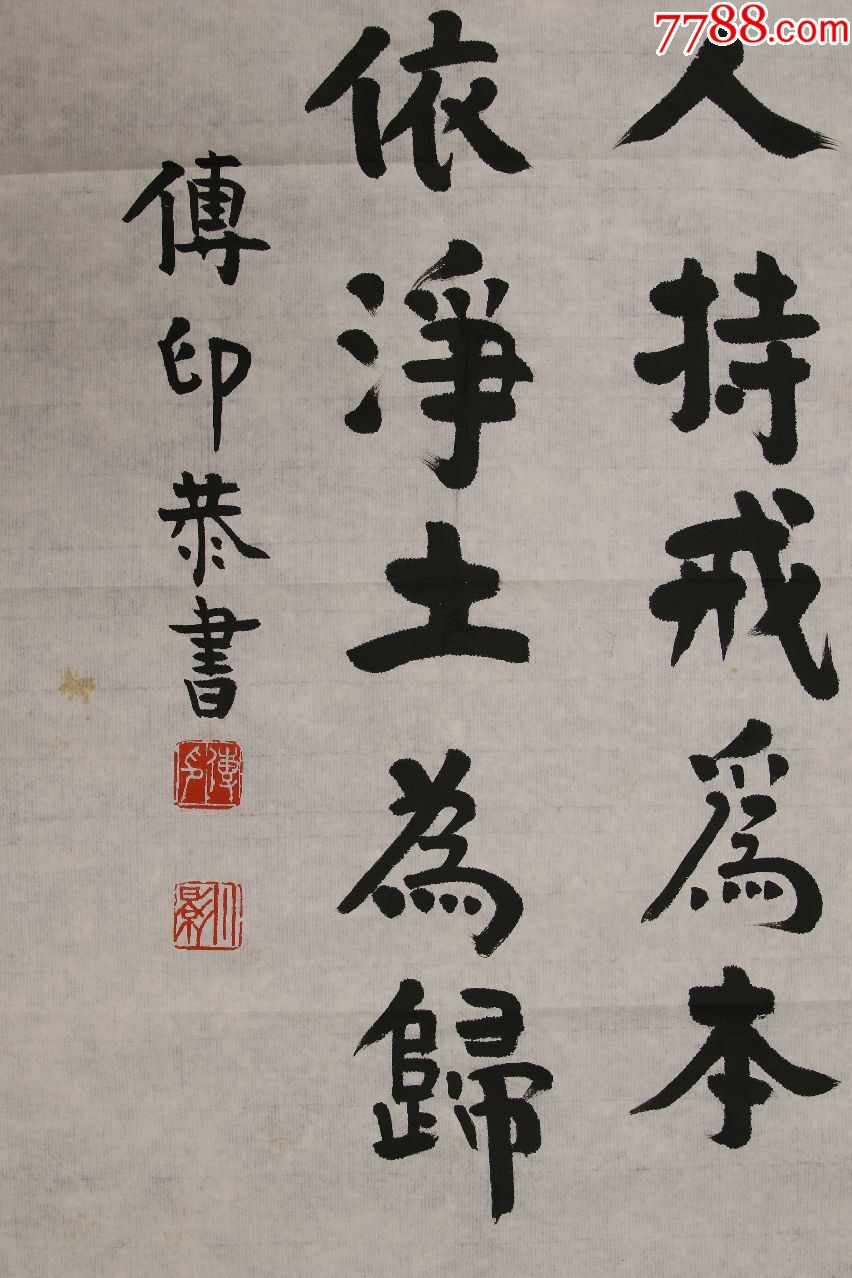 7788.com
人持戒爲本
依淨土為歸
傳印恭書
傳印